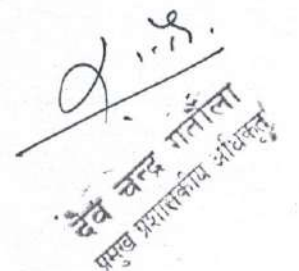 देव चन्द्र गतौला
प्रमुख प्रशासकीय अधिकृत